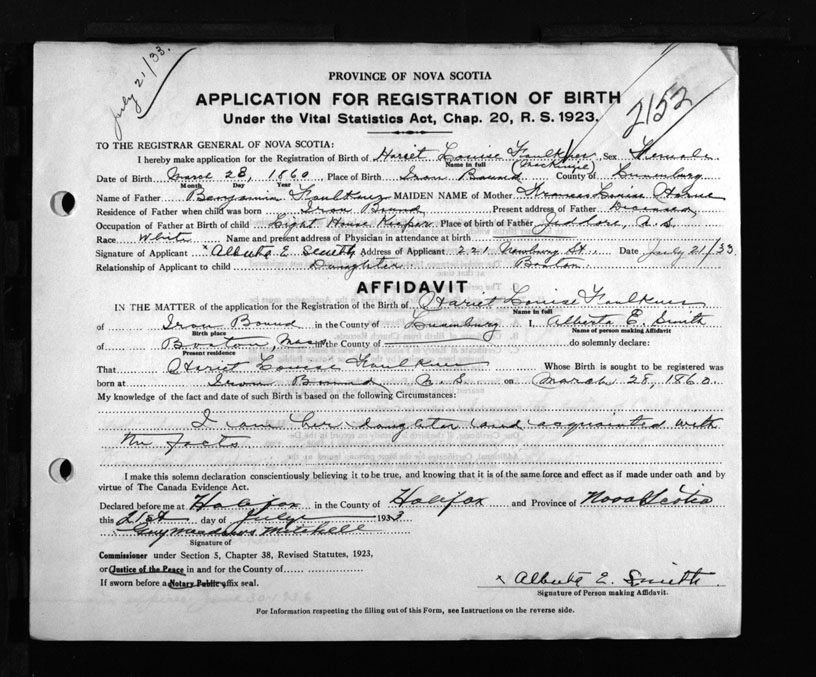 July 21/33.
2152
PROVINCE OF NOVA SCOTIA
APPLICATION FOR REGISTRATION OF BIRTH
Under the Vital Statistics Act, Chap. 20, R. S. 1923.
TO THE REGISTRAR GENERAL OF NOVA SCOTIA:
I hereby make application for the Registration of Birth of Hariet Louise Faulkner Sex Female
Name in full
Date of Birth 28, 1860 Place of Birth Iron Bound County of Lunenburg
Month Day Year
Name of Father Benjamin Faulkner MAIDEN NAME of Mother Frances Louise
Residence of Father when child was born Iron Bound Present address of Father Deceased
Occupation of Father at Birth of child Light House Keeper Place of birth of Father Jeddore, N. S.
Race White Name and present address of Physician in attendance at birth
Signature of Applicant x Alberta E. Smith Address of Applicant 221 Newbury St. Date July 21/33
Relationship of Applicant to child Daughter Boston
AFFIDAVIT
IN THE MATTER of the application for the Registration of the Birth of Hariet Louise Faulkner
Name in full
of Iron Bound in the County of Lunenburg I, Alberta E. Smith
Birth place Name of person making Affidavit
of Boston, Mass in the County of do solemnly declare:
Present residence
That Hariet Louise Faulkner Whose Birth is sought to be registered was
born at Iron Bound N. S. on March 28, 1860
My knowledge of the fact and date of such Birth is based on the following Circumstances:
I am her daughter and acquainted with
the facts
I make this solemn declaration conscientiously believing it to be true, and knowing that it is of the same force and effect as if made under oath and by
virtue of The Canada Evidence Act.
Declared before me at Halifax in the County of Halifax and Province of Nova Scotia
this 21st day of July 1933
Guy Mitchell
Signature of
Commissioner under Section 5, Chapter 38, Revised Statutes, 1923,
or Justice of the Peace in and for the County of
If sworn before a Notary Public affix seal.
x Alberta E. Smith
Signature of Person making Affidavit.
For Information respecting the filling out of this Form, see Instructions on the reverse side.